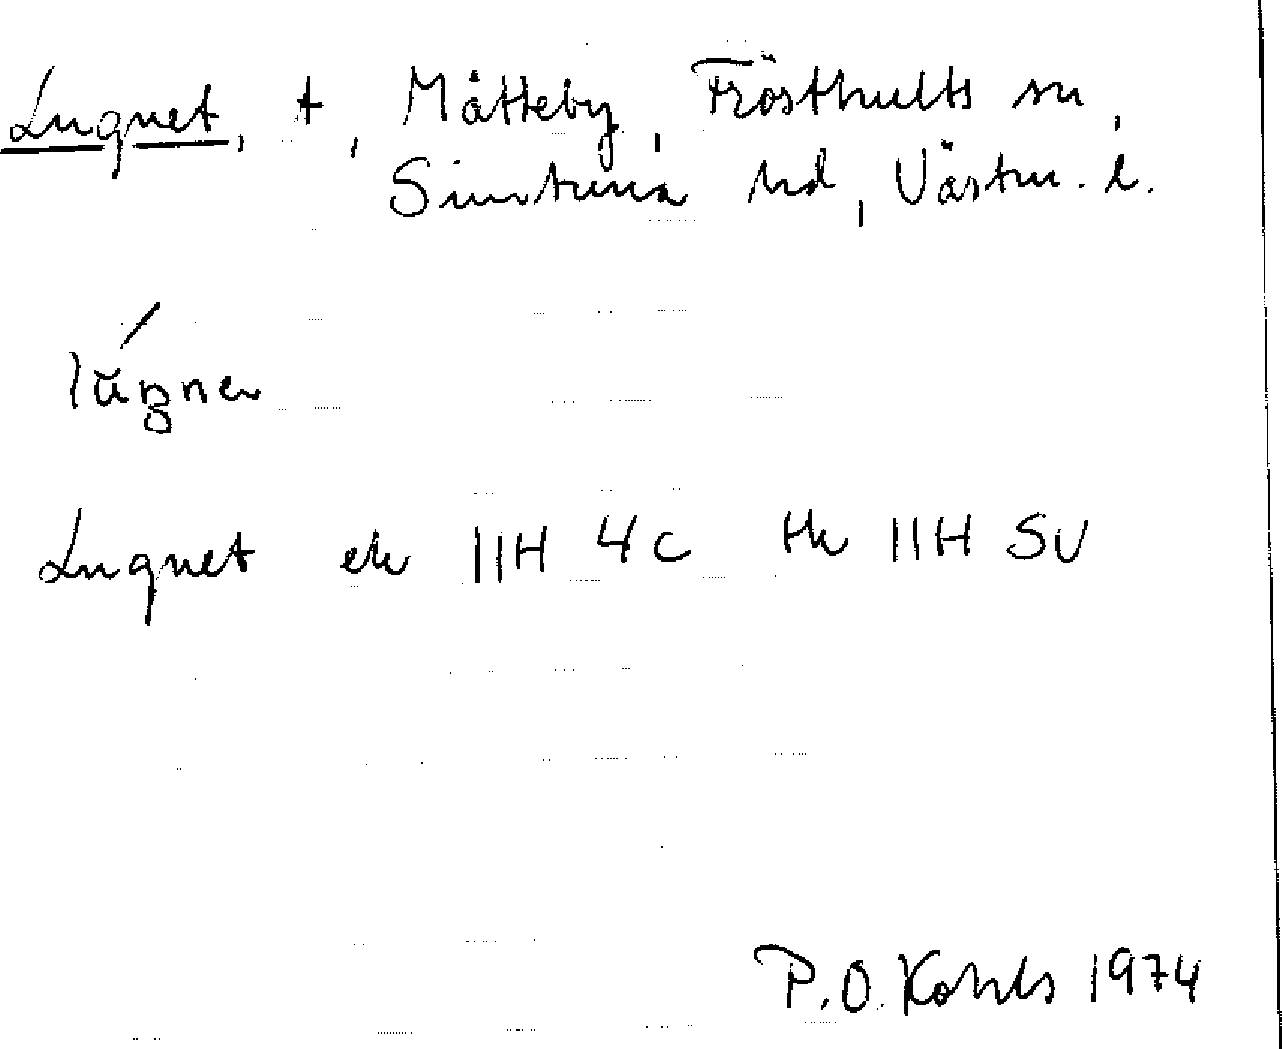 Lugnet, t, Måtteby, Frösthults sn,
Simtuna hd, Västm. l.
Lugnet ek 11H 4c tk 11H SV
P.O. Kohls 1974